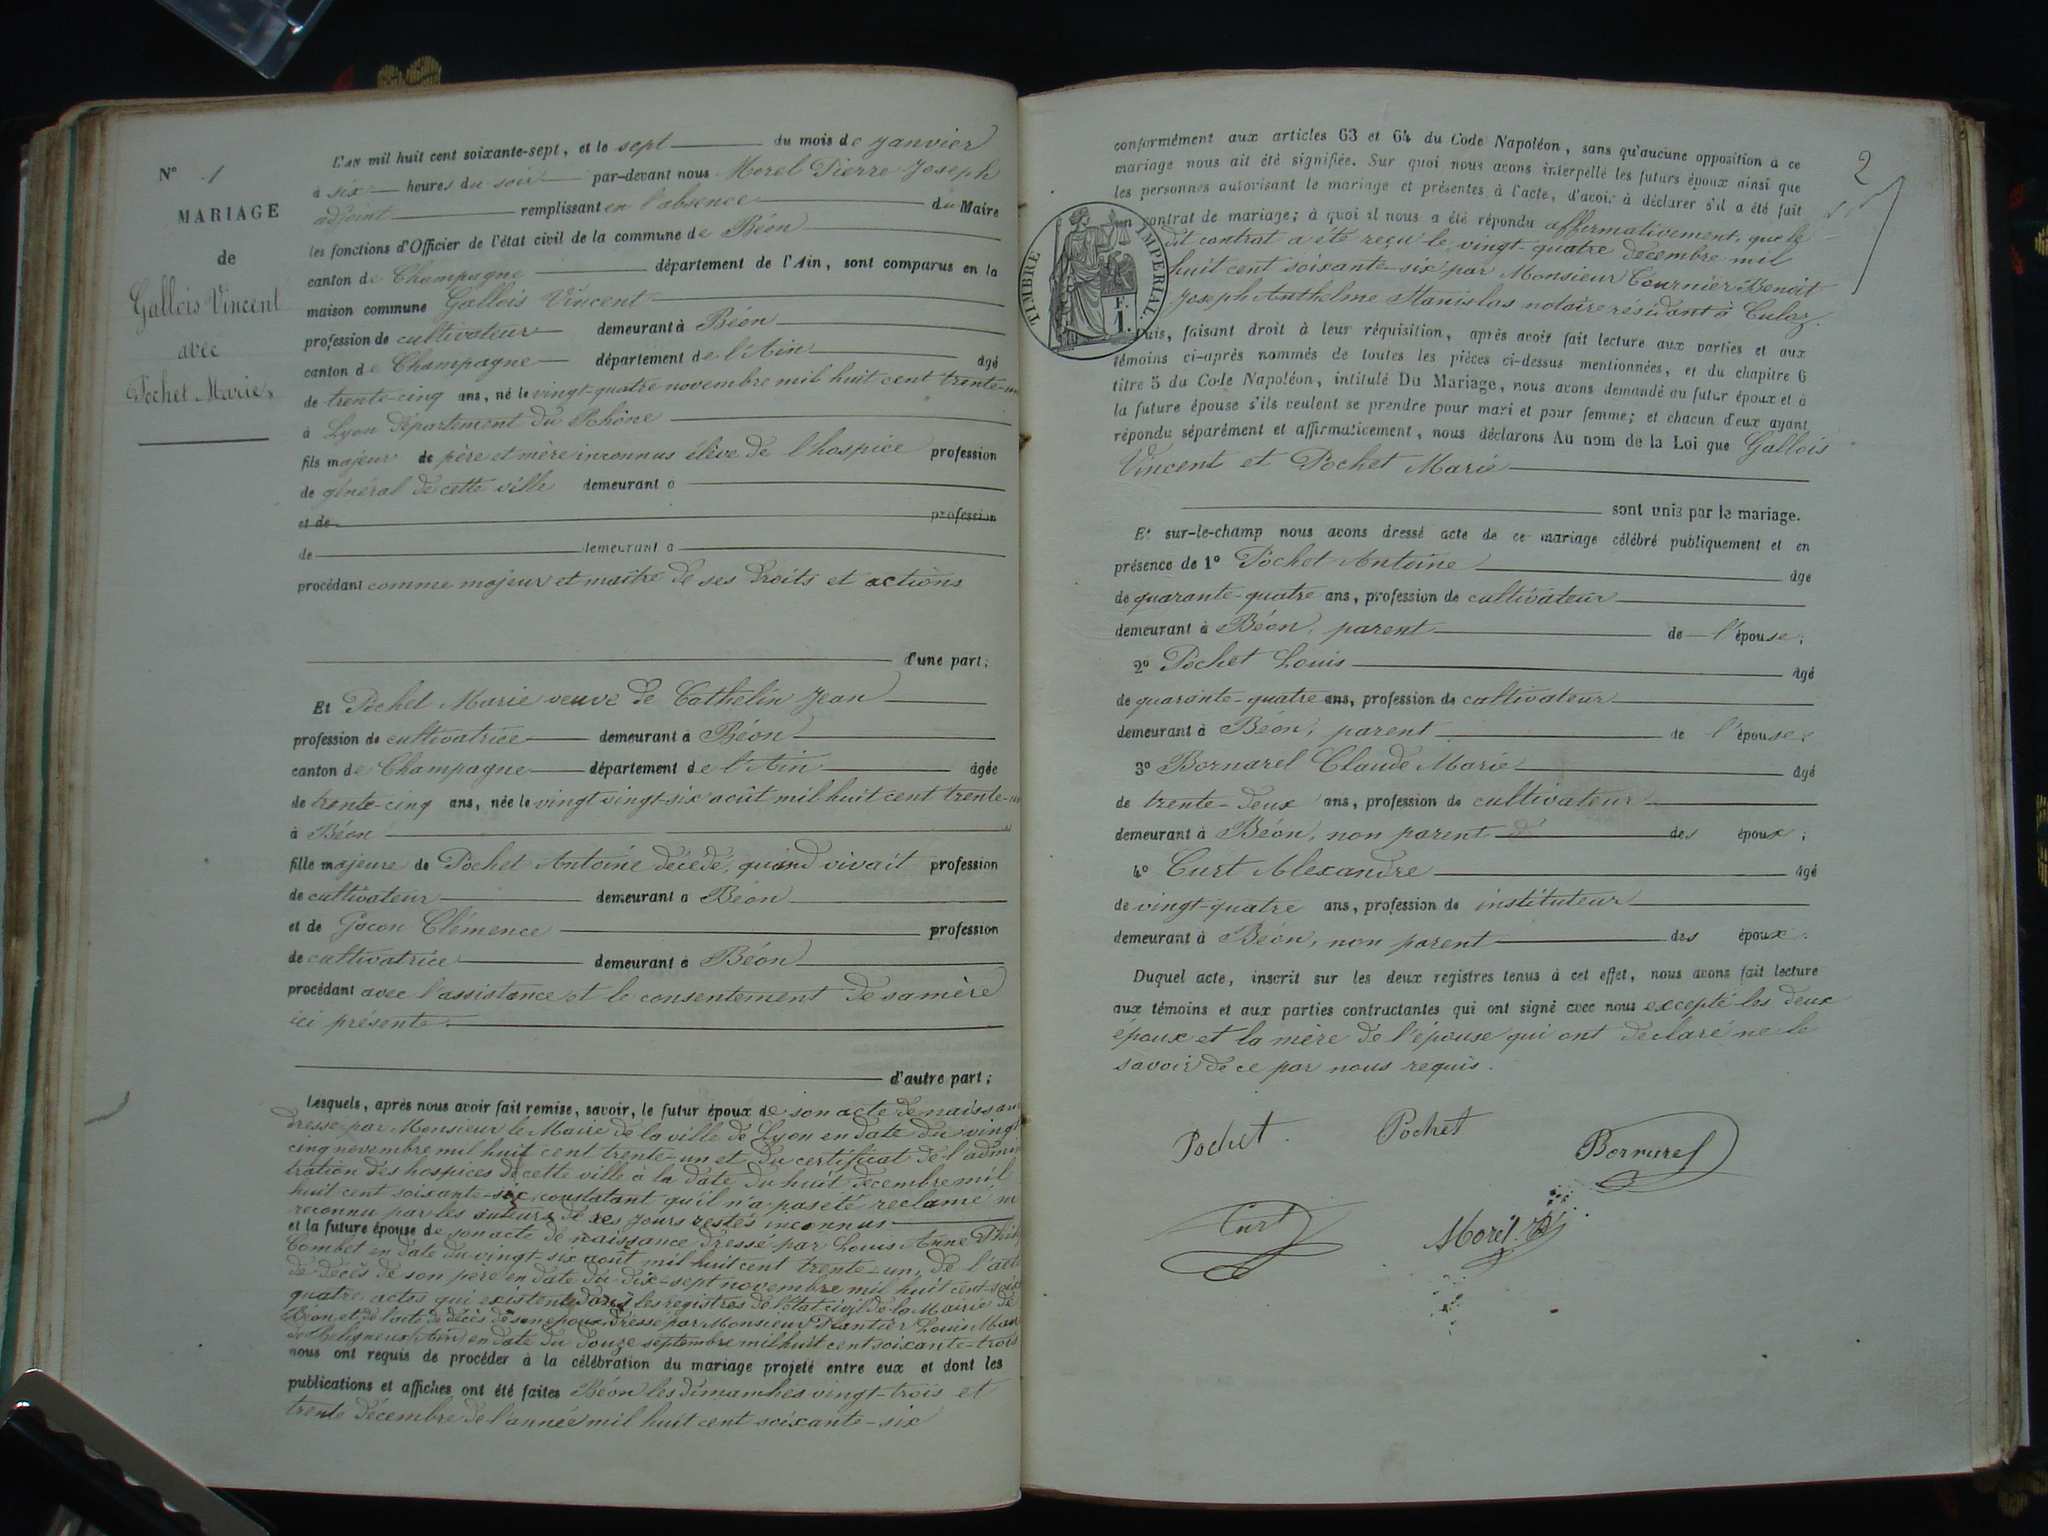 N° 1
MARIAGE
de
Gallois Vincent
avec
Pochet Marie
L'an mil huit cent soixante-sept, et le sept du mois de janvier
à six heures du soir par-devant nous Morel Pierre Joseph
adjoint remplissant en l'absence du Maire
les fonctions d'Officier de l'état civil de la commune de Béon
canton de Champagne département de l'Ain, sont comparus en la
maison commune Gallois Vincent
profession de cultivateur demeurant à Béon
canton de Champagne département de l'Ain âgé
de trente-cinq ans, né le vingt-quatre novembre mil huit cent trente-un
à Lyon département du Rhône
fils majeur de père et mère inconnus élève de l'hospice profession
de général de cette ville demeurant à
et de profession
de demeurant à
procédant comme majeur et maître de ses droits et actions
d'une part;
Et Pochet Marie veuve de Cathelin Jean
profession de cultivatrice demeurant à Béon
canton de Champagne département de l'Ain âgée
de trente-cinq ans, née le vingt vingt-six août mil huit cent trente-un
à Béon
fille majeure de Pochet Antoine décédé, quand vivait profession
de cultivateur demeurant à Béon
et de Gocon Clémence profession
de cultivatrice demeurant à Béon
procédant avec l'assistance et le consentement de sa mère
ici présente.
d'autre part;
Lesquels, après nous avoir fait remise, savoir, le futur époux de son acte de naissan
dressé par Monsieur le Maire de la ville de Lyon en date du vingt
cinq novembre mil huit cent trente-un et du certificat de l'admin
tration des hospices de cette ville à la date du huit décembre mil
huit cent soixante-six, constatant qu'il n'a pas été réclamé ni
reconnu par les auteurs de ses jours restés inconnus
et la future épouse de son acte de naissance dressé par Louis Anne Phil
Combet en date du vingt-six août mil huit cent trente-un, de l'acte
de décès de son père en date du dix-sept novembre mil huit cent soix
quatre, actes qui existent dans les registres de l'état civil de la Mairie de
Béon et de l'acte de décès de son époux dressé par Monsieur Plantier Louis Mair
en date du douze septembre mil huit cent soixante-trois
nous ont requis de procéder à la célébration du mariage projeté entre eux et dont les
publications et affiches ont été faites Béon les dimanches vingt-trois et
trente décembre de l'année mil huit cent soixante-six
2
conformément aux articles 63 et 64 du Code Napoléon, sans qu'aucune opposition à ce
mariage nous ait été signifiée. Sur quoi nous avons interpellé les futurs époux ainsi que
les personnes autorisant le mariage et présentes à l'acte, d'avoir à déclarer s'il a été fait
un contrat de mariage; à quoi il nous a été répondu affirmativement, que le
dit contrat a été reçu le vingt-quatre décembre mil
huit cent soixante-six par Monsieur Cournier Benoit
Joseph Anthelme Stanislas notaire résidant à Culoz.
TIMBRE IMPERIAL.
F.
1.
Puis, faisant droit à leur réquisition, après avoir fait lecture aux parties et aux
témoins ci-après nommés de toutes les pièces ci-dessus mentionnées, et du chapitre 6
titre 5 du Code Napoléon, intitulé Du Mariage, nous avons demandé au futur époux et à
la future épouse s'ils veulent se prendre pour mari et pour femme; et chacun d'eux ayant
répondu séparément et affirmativement, nous déclarons Au nom de la Loi que Gallois
Vincent et Pochet Marie
sont unis par le mariage.
Et sur-le-champ nous avons dressé acte de ce mariage célébré publiquement et en
présence de 1° Pochet Antoine âgé
de quarante-quatre ans, profession de cultivateur
demeurant à Béon, parent de l'épouse;
2° Pochet Louis âgé
de quarante-quatre ans, profession de cultivateur
demeurant à Béon, parent de l'épouse;
3° Bornarel Claude Marie âgé
de trente-deux ans, profession de cultivateur
demeurant à Béon, non parent des époux;
4° Curt Alexandre âgé
de vingt-quatre ans, profession de instituteur
demeurant à Béon, non parent des époux.
Duquel acte, inscrit sur les deux registres tenus à cet effet, nous avons fait lecture
aux témoins et aux parties contractantes qui ont signé avec nous excepté les deux
époux et la mère de l'épouse qui ont déclaré ne le
savoir de ce par nous requis.
Pochet. Pochet Bornarel
Curt Morel